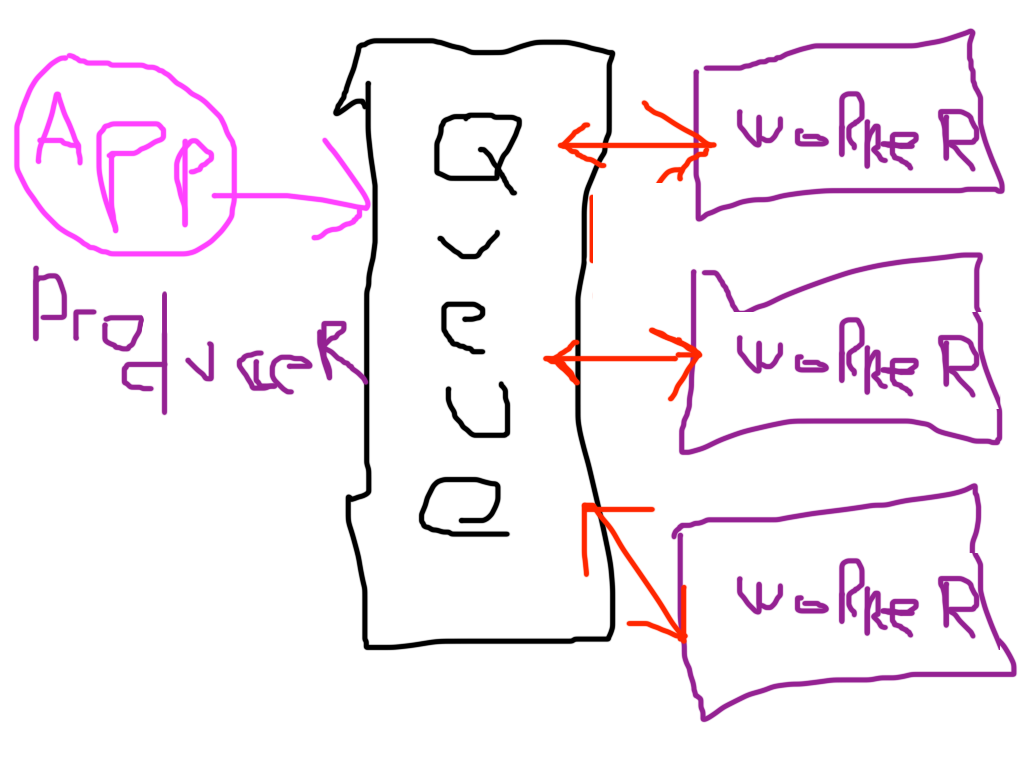 APP
Producer
Queue
WoRkeR
WoRkeR
WoRkeR